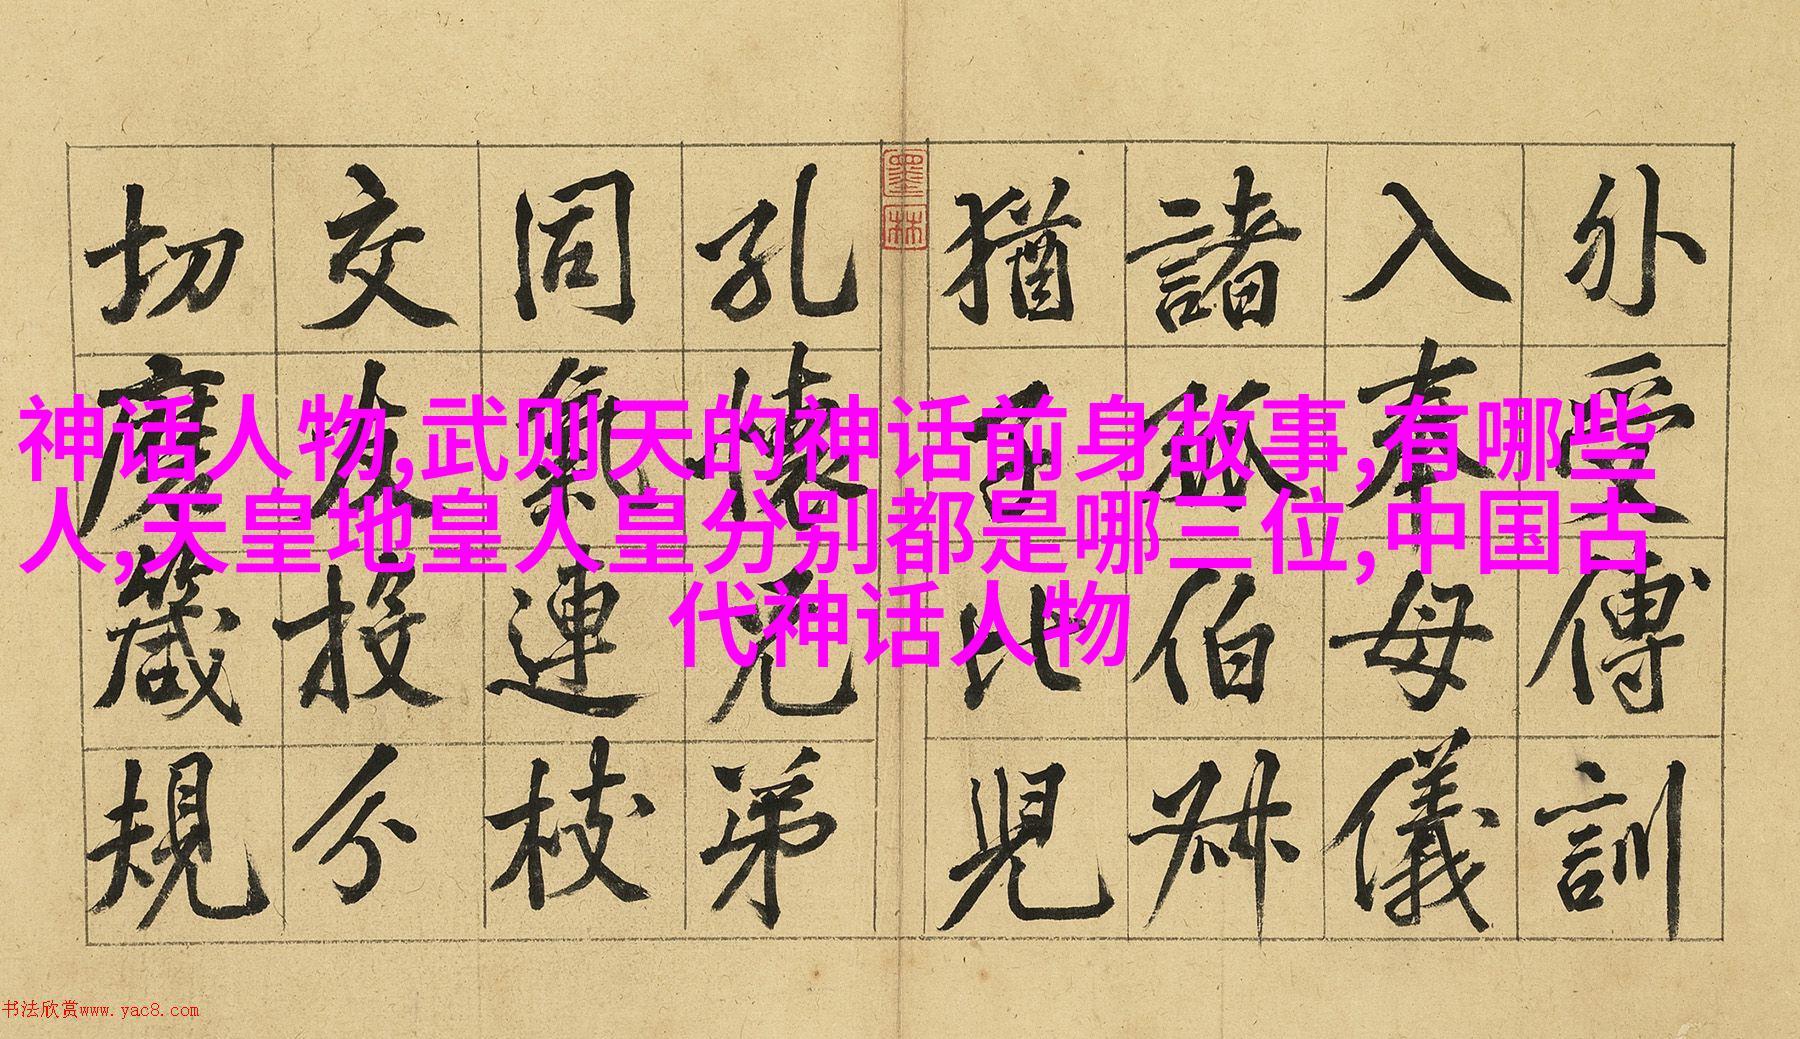 外受傅訓
入奉母儀
諸姑伯叔
猶子比兒
墨林
孔懷兄弟
同氣連枝
交友投分
切磨箴規
神话人物,武则天的神话前身故事,有哪些
人,天皇地皇人皇分别都是哪三位,中国古
代神话人物
书法欣赏www.yac8.com